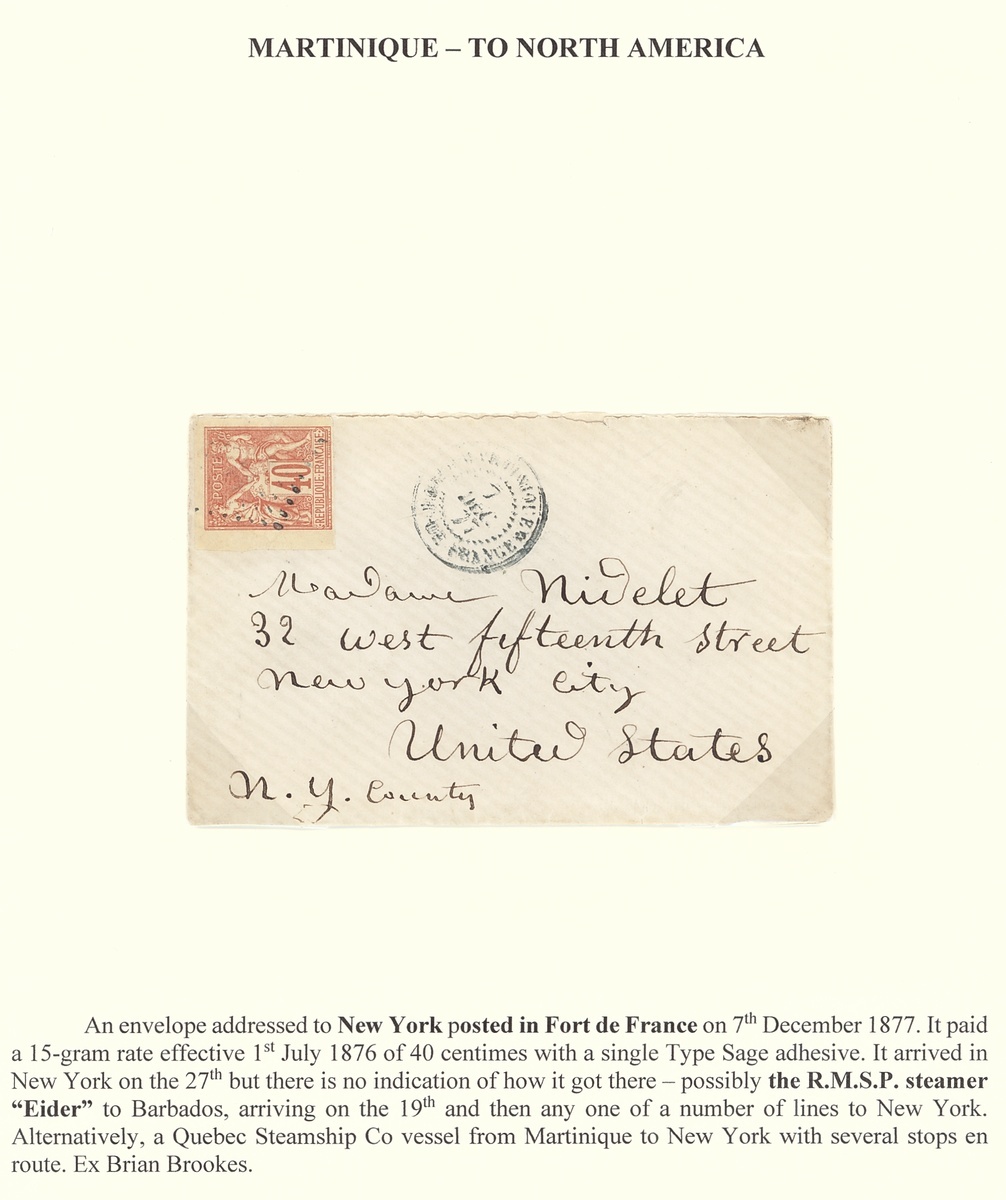 MARTINIQUE – TO NORTH AMERICA
POSTES
40
REPUBLIQUE FRANÇAISE
MARTINIQUE
7
DEC
77
FT DE FRANCE
Madame Nidelet
32 West fifteenth Street
New York City
United States
N. Y. County
An envelope addressed to New York posted in Fort de France on 7th December 1877. It paid
a 15-gram rate effective 1st July 1876 of 40 centimes with a single Type Sage adhesive. It arrived in
New York on the 27th but there is no indication of how it got there – possibly the R.M.S.P. steamer
“Eider” to Barbados, arriving on the 19th and then any one of a number of lines to New York.
Alternatively, a Quebec Steamship Co vessel from Martinique to New York with several stops en
route. Ex Brian Brookes.